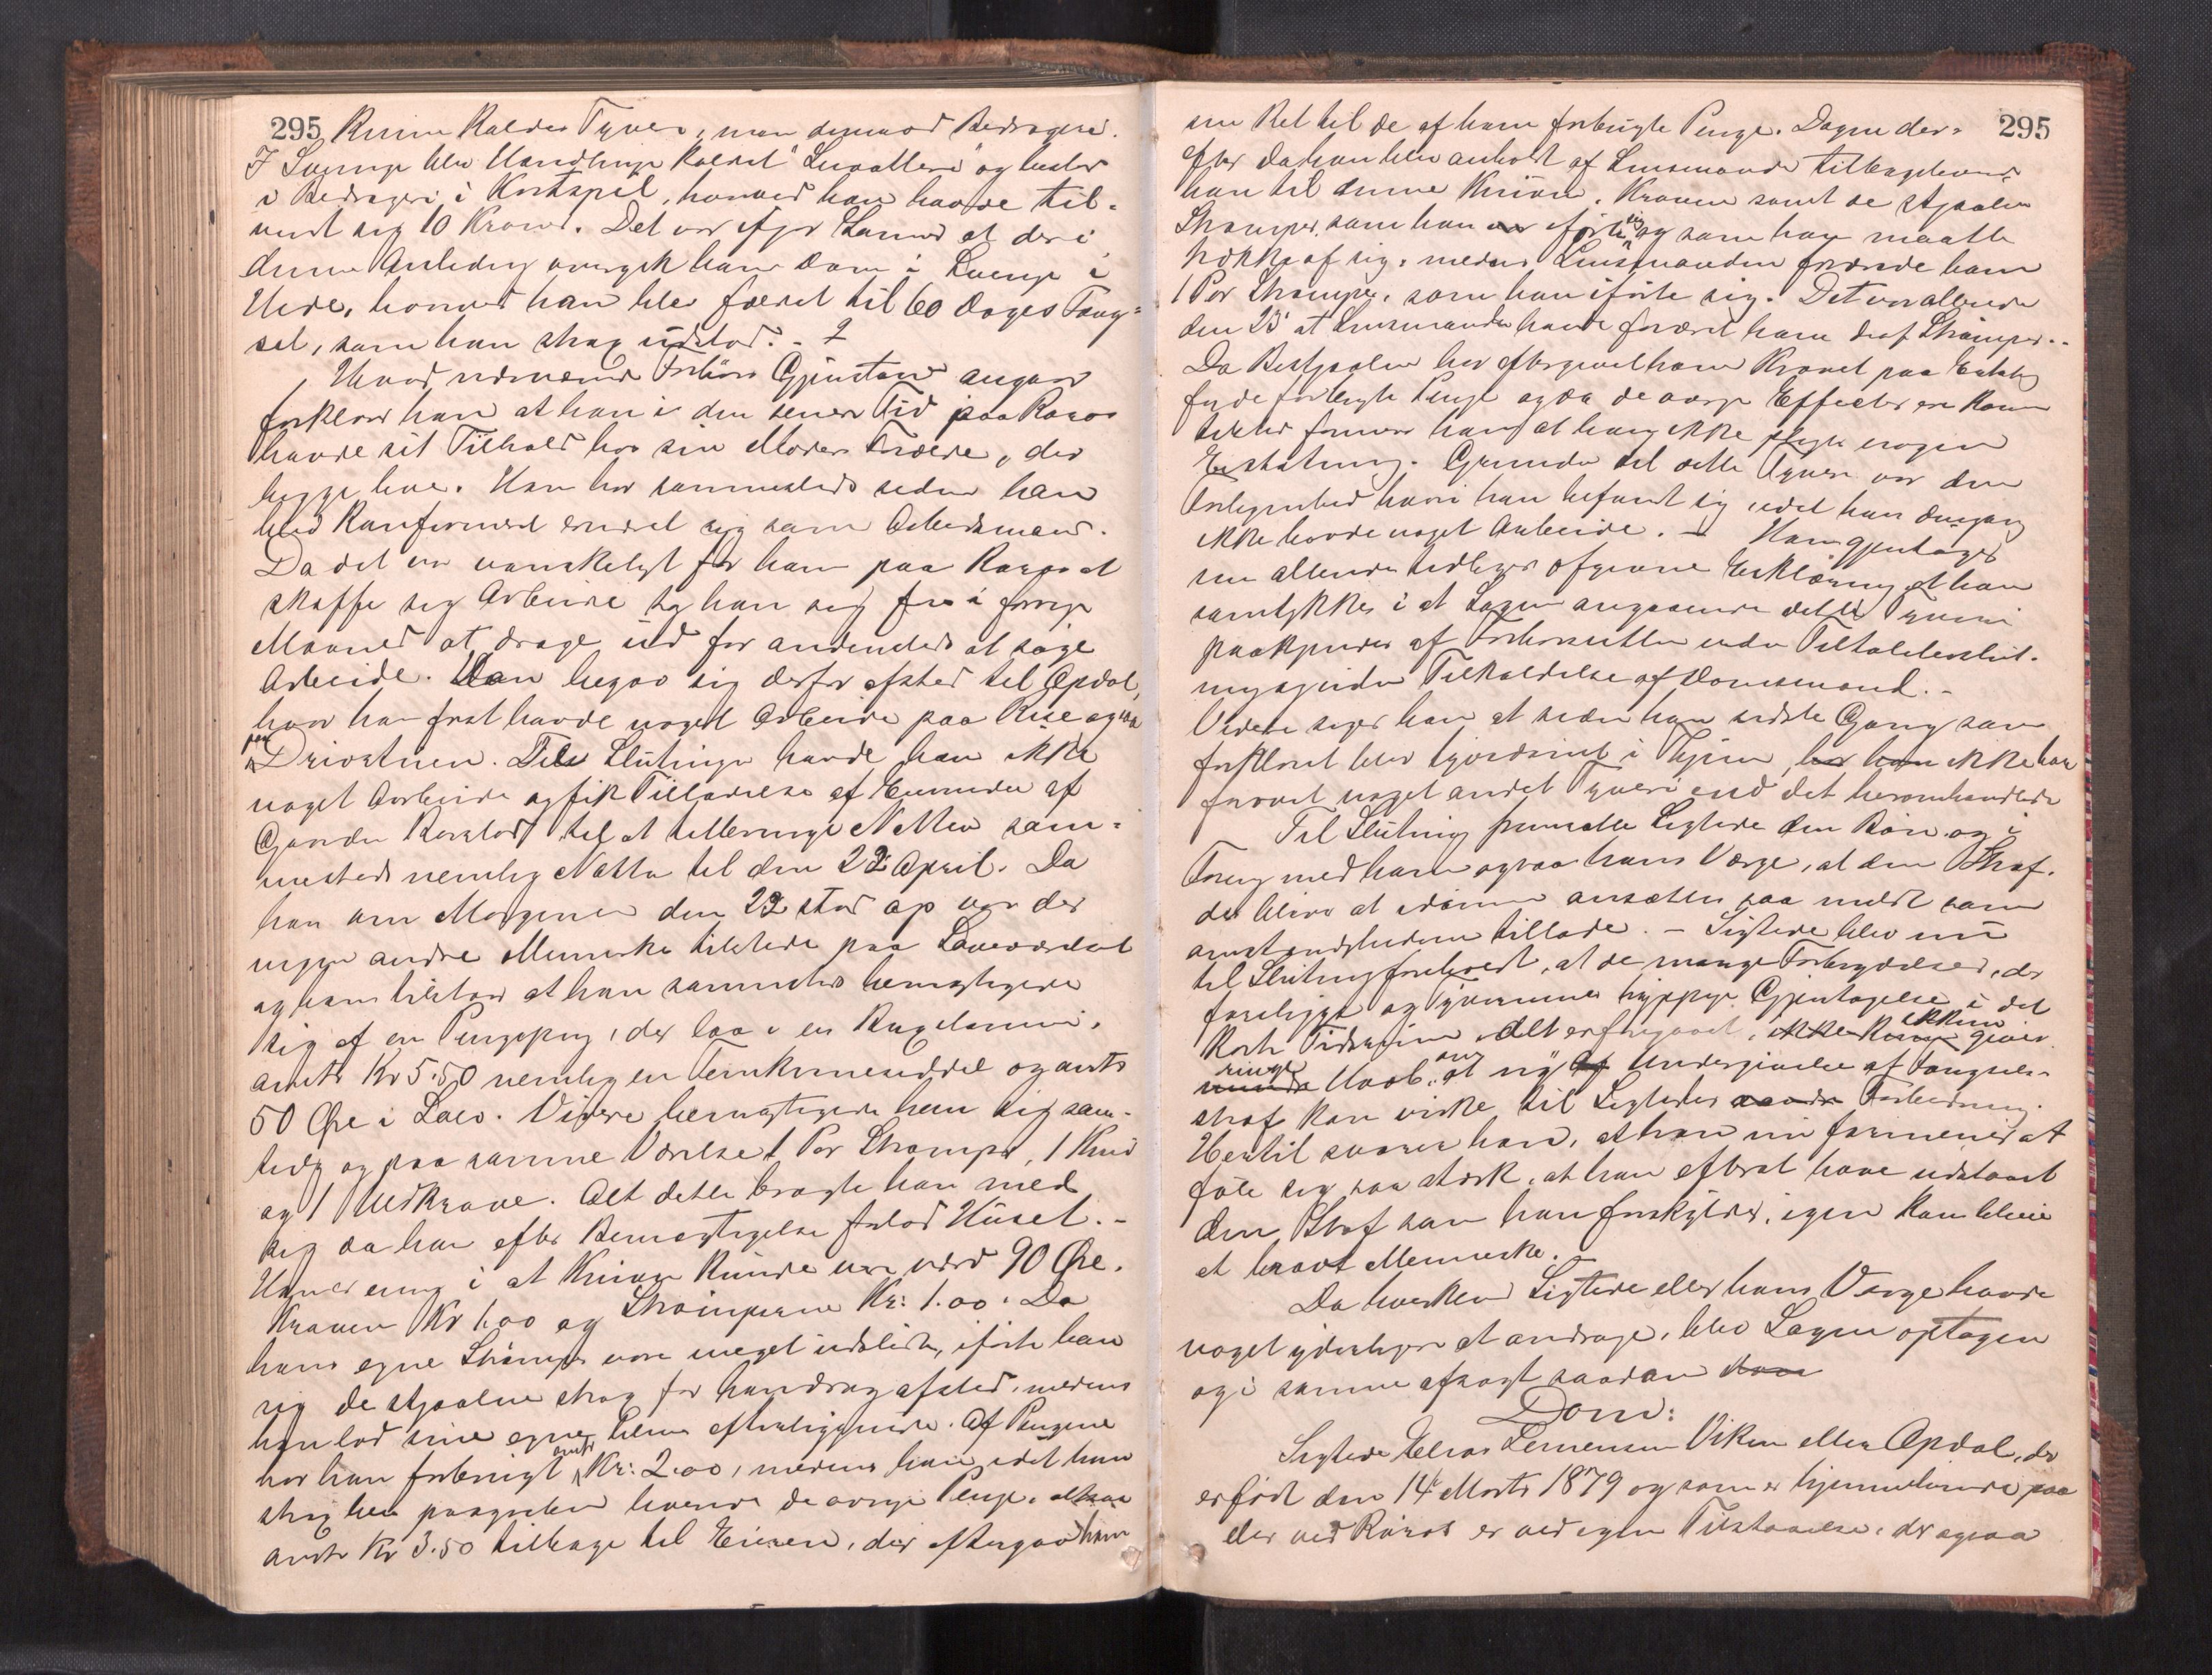 295 kunne kaldes Tyveri, men derimod Bedrageri.
I Sverige blev Handlinge kaldet "Snatteri" og bestod
i Bedrageri i Kortspil, hvorved han havde til-
vendt sig 10 Kroner. Det var ifjor Sommer at der i
denne Anledning overgik ham Dom i Sverige i
Hede, hvorved han blev fældet til 60 Dages Fæng-
sel, som han strax udstod. -
Hvad nærværende Forhørs Gjenstand angaar
forklarer han at han i den senere Tid paa Røros
havde sit Tilhold hos sin Moders Forældre, der
begge leve. Han har sammesteds siden han
blev konfirmeret ernæret sig som Arbeidsmand.
Da det var vanskeligt for ham paa Røros at
skaffe sig Arbeide saa han sig fore i forrige
Maaned at drage ud for andensteds at søge
Arbeide. Han begav sig derfor afsted til Opdal,
hvor han først havde noget Arbeide paa Rise og
paa Drivstuen. Til Slutningen havde han ikke
noget Arbeide og fik Tilladelse af Eieren af
Gaarden til at tilbringe Natten sam-
mesteds nemlig Natten til den 22 April. Da
han om Morgenen den 22 stod op var der
ingen andre Mennesker tilstede paa Soveværelset
og han tilstaar at han sammesteds bemægtigede
sig af en Pengepung, der laa i en
omtr Kr 5.50 nemlig en Femkroneseddel og omtr
50 Øre i Sølv. Videre bemægtigede han sig sam-
tidig og paa samme Værelse 1 Par Strømper, 1 Kniv
og 1 Uldkrave. Alt dette bragte han med
sig da han efter Bemægtigelsen forlod Huset. -
Han er enig i at Kniven kunde være værd 90 Øre.
Kraven Kr 1.00 og Strømperne Kr: 1.00. Da
hans egne Strømper vare meget udslidte, iførte han
sig de stjaalne strax før han drog afsted, medens
han lod sine egne blive efterliggende. Af Pengene
har han forbrugt omtr Kr: 2.00, medens han, idet han
strax blev paagreben leverede de øvrige Penge, altsaa
omtr Kr 3.50 tilbage til Eieren, der eftergav ham
sin Ret til de af ham forbrugte Penge. Dagen der- 295
efter da han blev anholdt af Lensmanden tilbageleverede
han til denne Kniven, Kraven samt de stjaalne
Strømper, som han var iført sig og som han maatte
trække af sig, medens Lensmanden forærede ham
1 Par Strømper, som han iførte sig. Det var allerede
den 23' at Lensmanden havde foræret ham disse Strømper. -
Da Bestjaalne har eftergivet ham Kravet paa Erstatning
for de forbrugte Penge og da de øvrige Effecter ere kommen
tilstede formener han at han ikke skylder nogen
Erstatning. Grunden til dette Tyveri var den
Forlegenhed hvori han befandt sig, idet han dengang
ikke havde noget Arbeide. - Han gjentager
sin allerede tidligere afgivne Erklæring, at han
samtykker i at Sagen angaaende dette Tyveri
paakjendes af Forhørsretten uden Tiltalebeslut-
ning og uden Tilkaldelse af Domsmænd. -
Videre siger han at siden han sidste Gang som
forklaret blev hjemsendt i Thjem, har han ikke har
forøvet noget andet Tyveri end det heromhandlede
Til Slutning fremsatte Sigtede den Bøn og i
Forening med ham ogsaa hans Værge, at den Straf,
der bliver at idømme ansættes saa mildt som
omstændighederne tillade. - Sigtede blev nu
til Slutning foreholdt, at de mange Forbrydelser, der
foreligge og Tyveriernes hyppige Gjentagelse i det
korte Tidsrum det er foregaaet, ikke kun giver
ringe Haab om at ny Undergivelse af Fængsels-
straf kan virke til Sigtedes Forbedring.
Hertil svarer han, at han nu formener at
føle sig saa stærk, at han efterat have udstaaet
den Straf som han forskylder, igjen kan blive
et bravt Menneske. -
Da hverken Sigtede eller hans Verge havde
noget yderligere at andrage, blev Sagen optagen
og i samme afsagt saadan Dom
Dom:
Sigtede Elias Viken eller Opdal, der
er født den 14 Marts 1879 og som er hjemmehørende paa
eller ved Røros er ved egen Tilstaaelse, der ogsaa